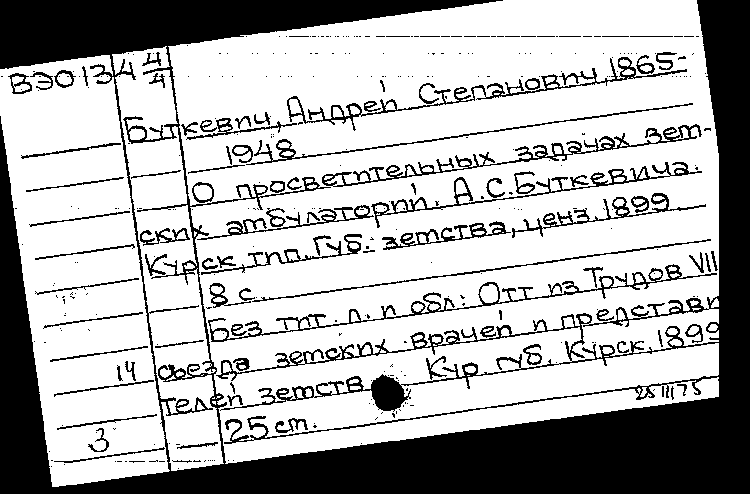 ВЭО134 4/4
Буткевич, Андрей Степанович, 1865-
1948.
О просветительных задачах зем-
ских амбулаторий. А.С.Буткевича.
Курск, тип. Губ. земства, ценз. 1899.
8 с.
Без тит. л. и обл: Отт из Трудов VII
14 съезда земских врачей и представи
телей земств Кур. губ. Курск, 1899
25 см.
3